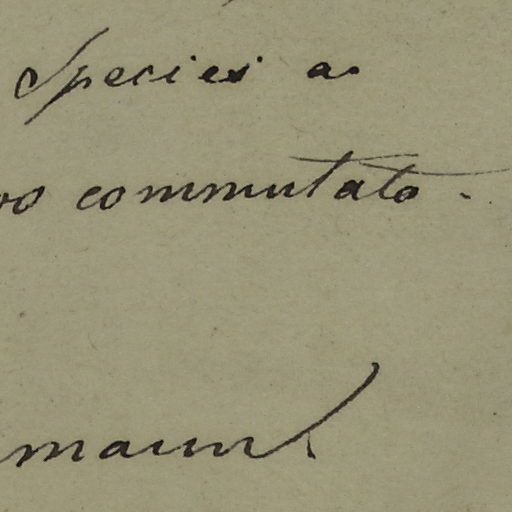 Species a
vo commutato.
mann.